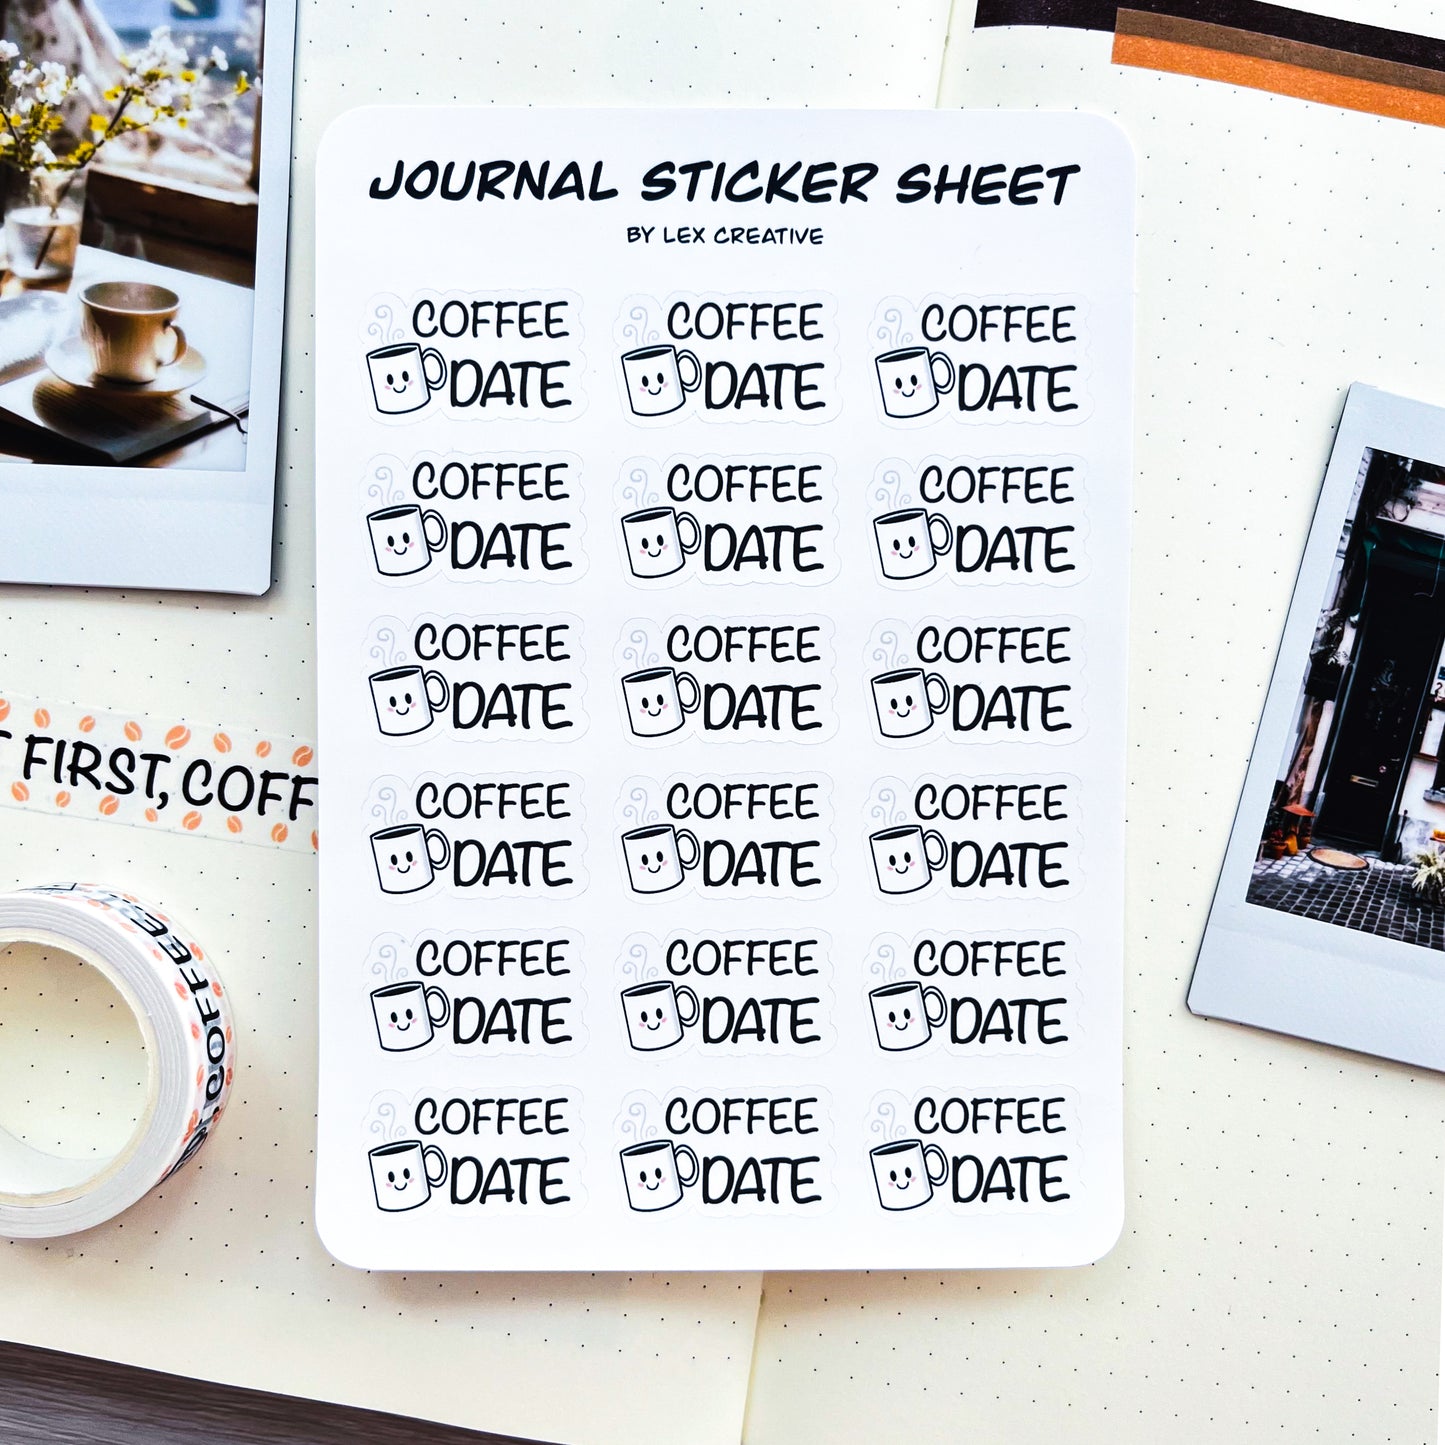 JOURNAL STICKER SHEET
BY LEX CREATIVE
COFFEE COFFEE COFFEE
DATE DATE DATE
COFFEE COFFEE COFFEE
DATE DATE DATE
COFFEE COFFEE COFFEE
DATE DATE DATE
COFFEE COFFEE COFFEE
DATE DATE DATE
COFFEE COFFEE COFFEE
DATE DATE DATE
COFFEE COFFEE COFFEE
DATE DATE DATE
T FIRST, COFF
COFFEE